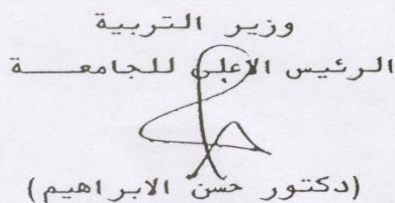 وزير التربية
الرئيس الأعلى للجامعـــة
(دكتور حسن الابراهيم)